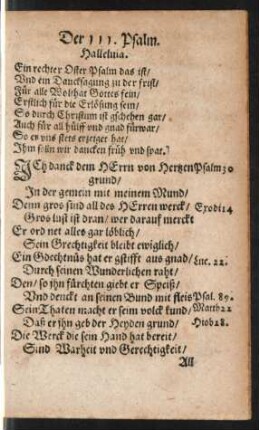 Der 111. Psalm.
Halleluia.
Ein rechter Oster Psalm das ist/
Vnd ein Dancksagung zu der frist/
Für alle Wolthat Gottes sein/
Erstlich für die Erlösung sein/
So durch Christum ist gschehen gar/
Auch für all hülff vnd gnad fürwar/
So er vns stets erzeiget hat/
Ihm solln wir dancken früh vnd spat.
ICh danck dem HErrn von Hertzen Psalm 30
grund/
In der gemein mit meinem Mund/
Denn gros sind all des HErren werck/ Exodi 14
Gros lust ist dran/ wer darauf merckt
Er ord net alles gar löblich/
Sein Grechtigkeit bleibt ewiglich/
Ein Gdechtnüs hat er gstifft aus gnad/ Luc. 22.
Durch seinen Wunderlichen raht/
Den/ so jhn fürchten giebt er Speiß/
Vnd denckt an seinen Bund mit fleis Psal. 89.
Sein Thaten macht er seim volck kund/ Matth 22
Daß er jhn geb der Heyden grund/ Hiob 28.
Die Werck die sein Hand hat bereit/
Sind Warheit vnd Gerechtigkeit/
All